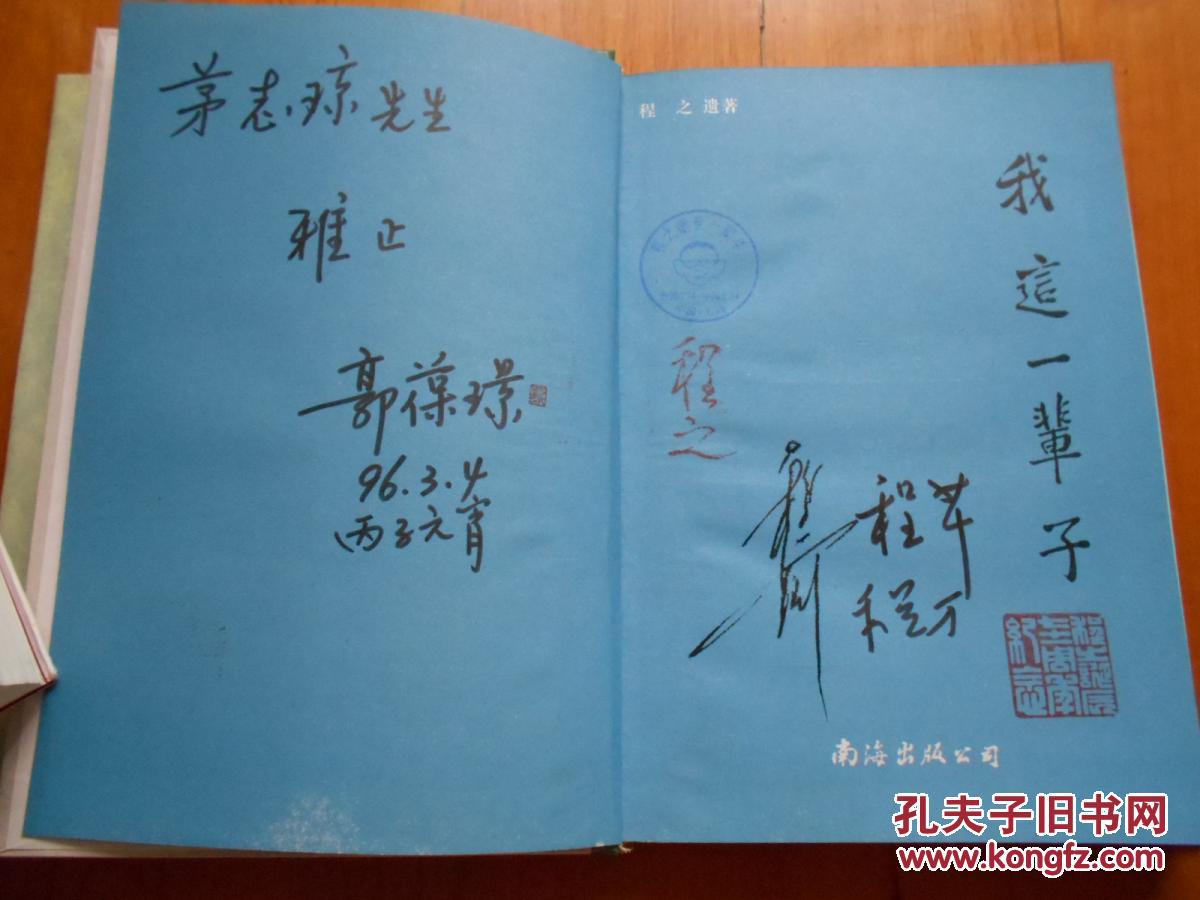 茅志琼先生
雅正
郭葆璟
96.3.4
丙子元宵
程 之 遗著
我這一輩子
程之
程
程
南海出版公司
孔夫子旧书网
www.kongfz.com